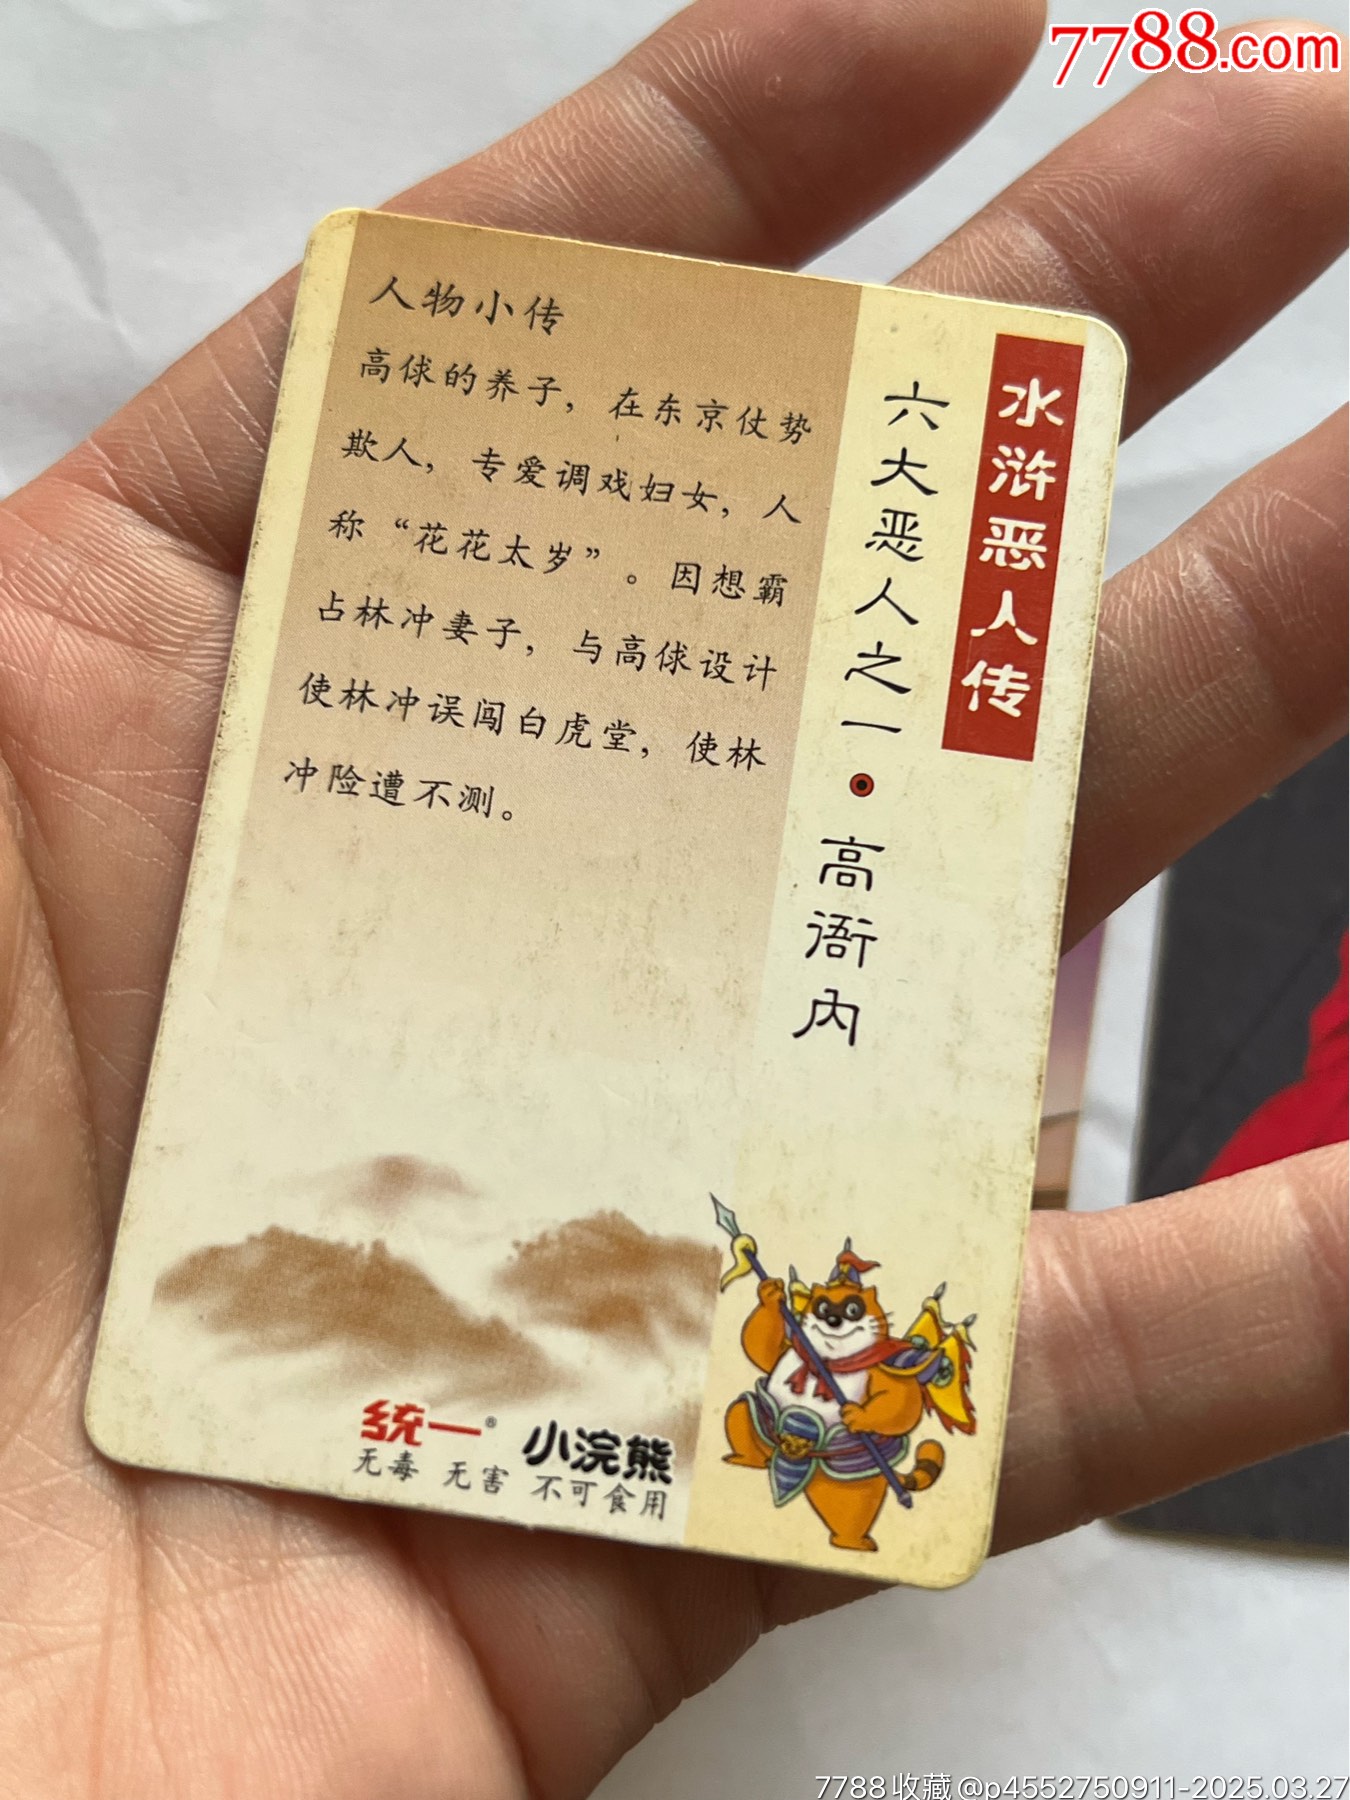 7788.com
水浒恶人传
六大恶人之一·高衙内
人物小传
高俅的养子，在东京仗势
欺人，专爱调戏妇女，人
称“花花太岁”。因想霸
占林冲妻子，与高俅设计
使林冲误闯白虎堂，使林
冲险遭不测。
统一® 小浣熊
无毒 无害 不可食用
7788收藏@p4552750911-2025.03.27